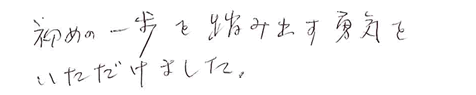 初めの一歩を踏み出す勇気を
いただけました。